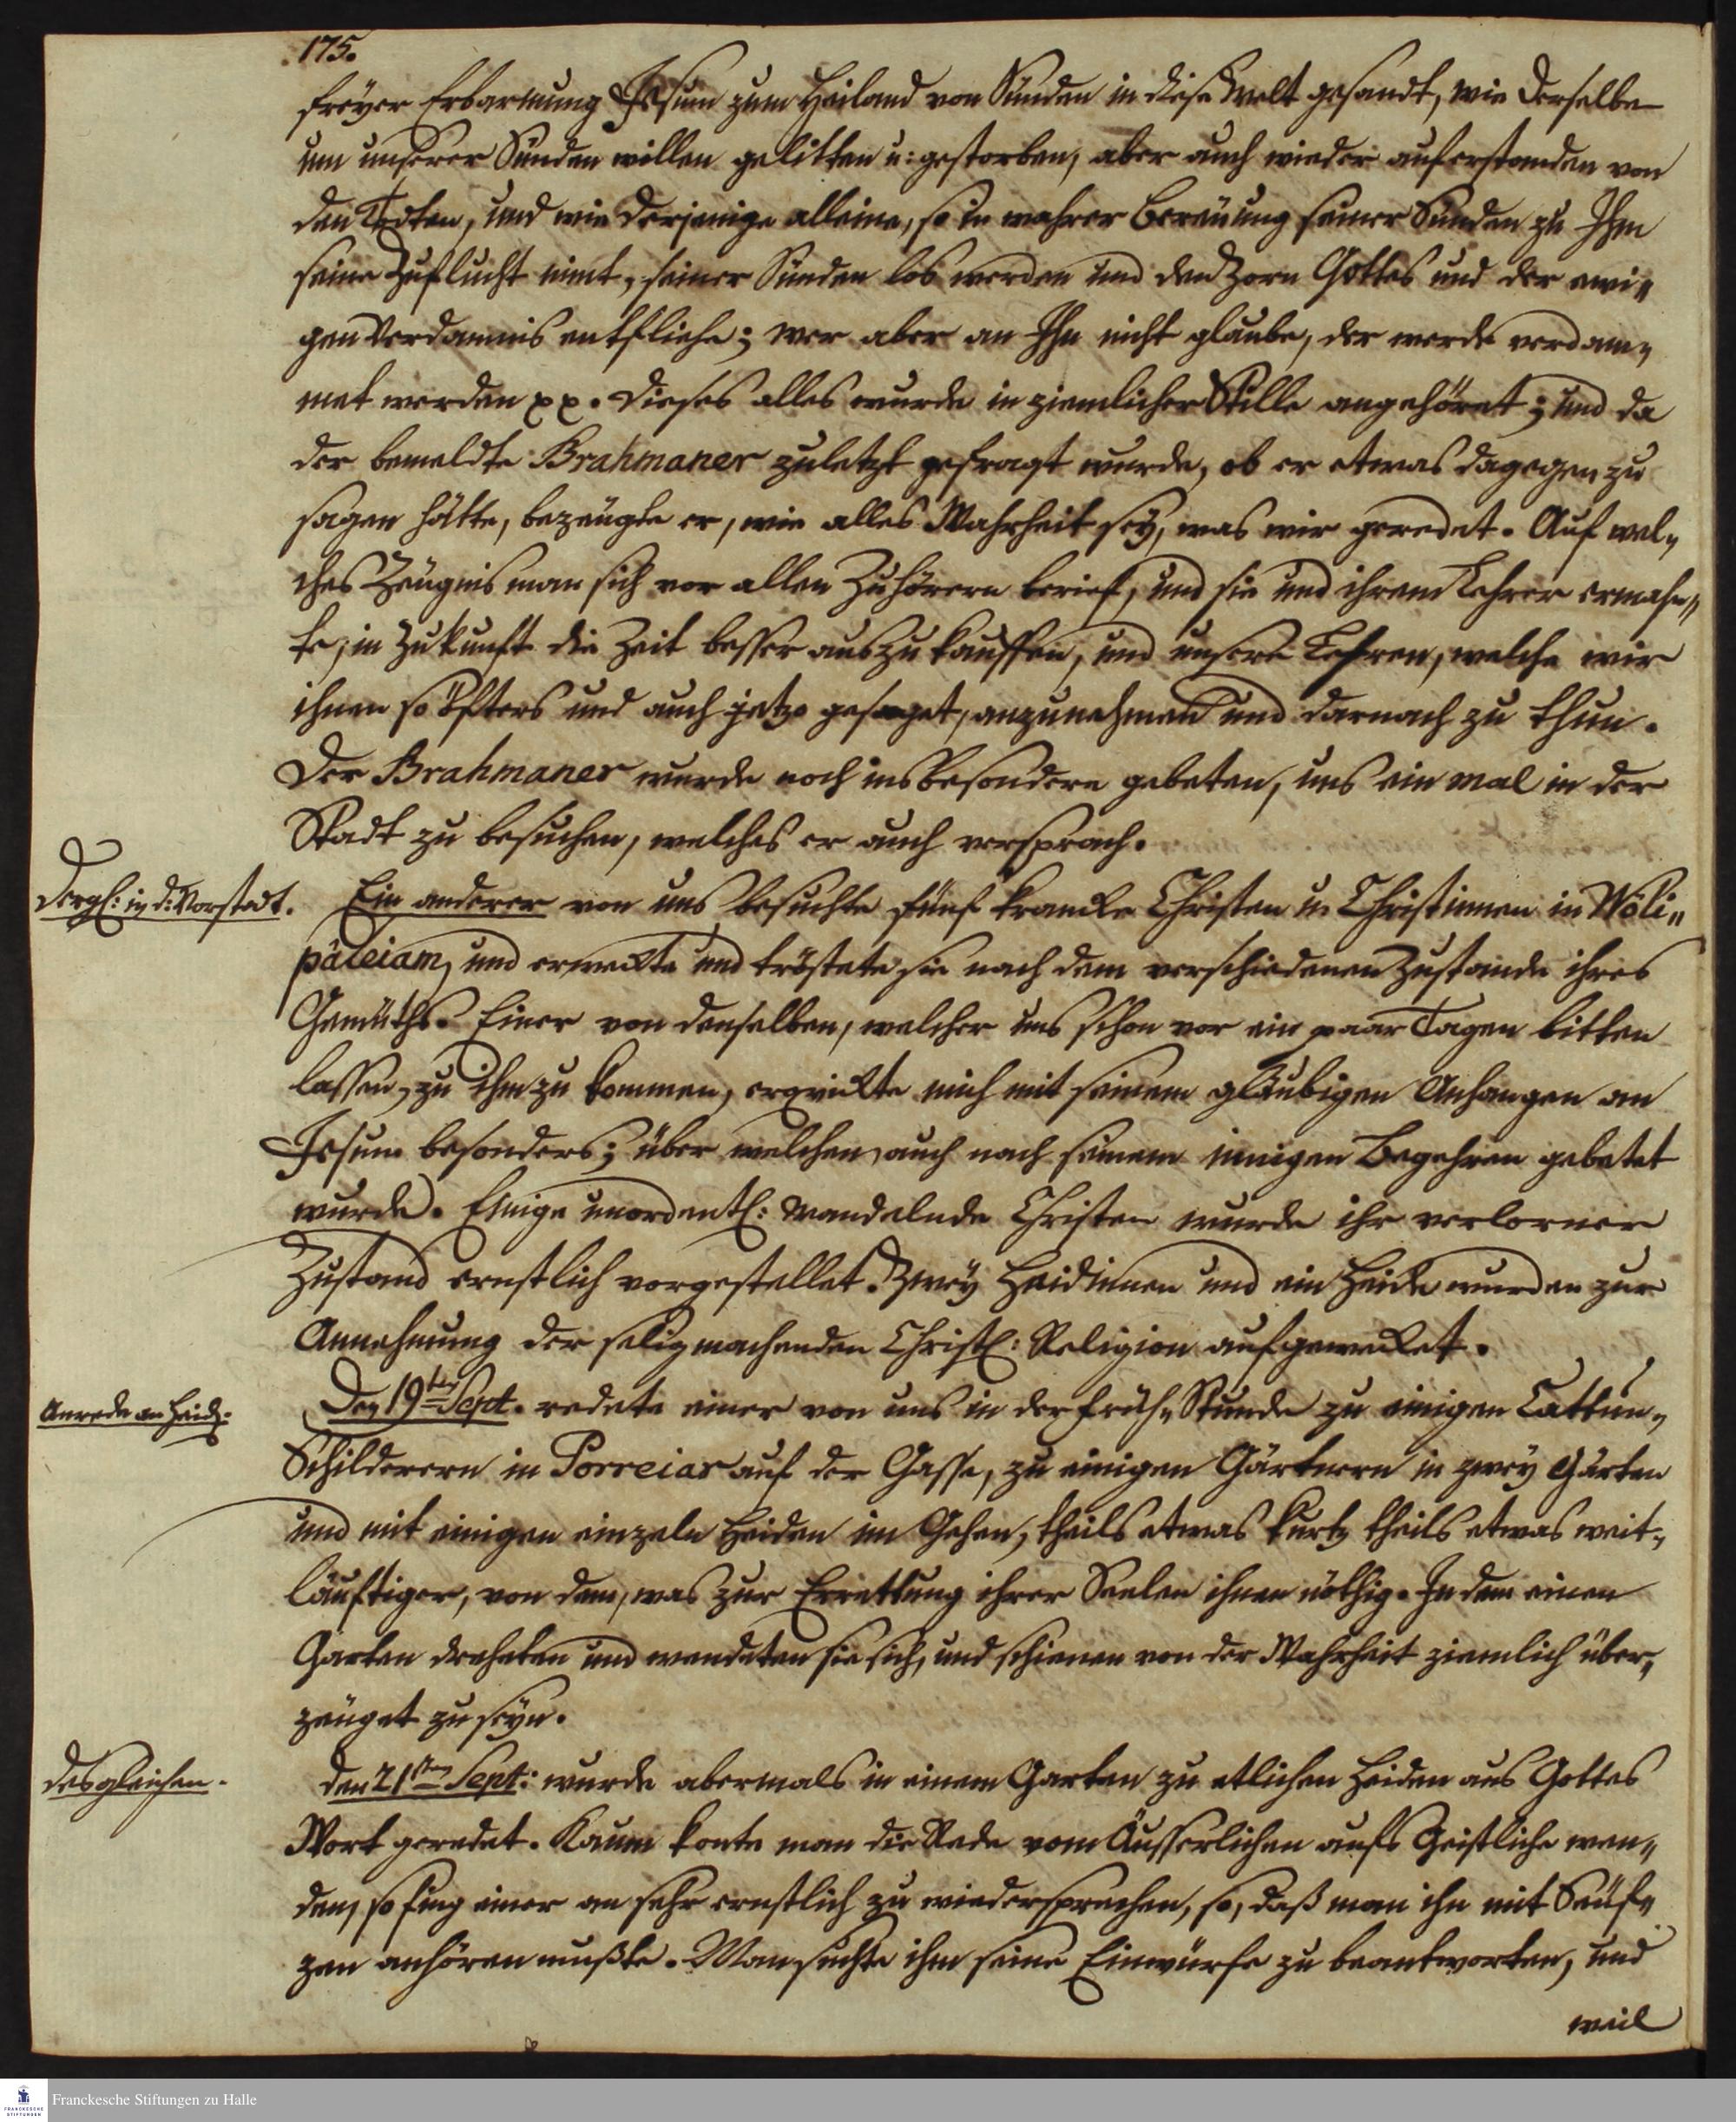 175.
freyer Erbarmung Jesum zum Heiland von Sünden in diese Welt gesandt, wie derselbe
um unserer Sünden willen gelitten u: gestorben, aber auch wieder auferstanden von
den Todten, und wie derjenige alleine, so in wahrer Bereuung seiner Sünden zu Ihm
seine Zuflucht nimt, seiner Sünden los werden und dem Zorn Gottes und der ewi„
gen Verdamnis entfliehe; wer aber an Ihn nicht glaube, der werde verdam„
met werden pp. Dieses alles wurde in ziemlicher Stille angehöret; und da
der bemeldte Brahmaner zuletzt gefragt wurde, ob er etwas dagegen zu
sagen hätte, bezeugte er, wie alles Wahrheit sey, was wir geredet. Auf wel„
ches Zeugnis man sich vor allen Zuhörern berief, und sie und ihrem Lehrer ermahn„
te, in Zukunft die Zeit besser auszukauffen, und unsere Lehren, welche wir
ihnen so öfters und auch jetzo gesaget, anzunehmen und darnach zu thun.
Der Brahmaner wurde noch insbesondere gebeten, uns ein mal in der
Stadt zu besuchen, welches er auch versprach.
Dergl: in d: Vorstadt.
Ein anderer von uns besuchte fünf krancke Christen u. Christinnen in Wöli„
páleiam, und erweckte und tröstete sie nach dem verschiedenen Zustande ihres
Gemüths. Einer von denselben, welcher uns schon vor ein paar Tagen bitten
lassen, zu ihm zu kommen, erqvickte mich mit seinem gläubigen Anhangen an
Jesum besonders; über welchen auch nach seinem innigen Begehren gebetet
wurde. Einige unordentl: wandelnde Christen wurde ihr verlorner
Zustand ernstlich vorgestellet. Zwey Heidinnen und ein Heide wurden zur
Annehmung der seligmachenden Christl: Religion aufgewecket.
Anrede an Heid:
Den 19ten Sept. redete einer von uns in der Früh-Stunde zu einigen Cattun„
Schilderern in Porreiar auf der Gasse, zu einigen Gärtnern in zwey Gärten
und mit einigen einzeln Heiden im Gehen, theils etwas kurtz theils etwas weit„
läuftiger, von dem, was zur Errettung ihrer Seelen ihnen nöthig. In dem einen
Garten dreheten und wendeten sie sich, und schienen von der Wahrheit ziemlich über„
zeuget zu seyn.
desgleichen.
den 21ten Sept: wurde abermals in einem Garten zu etlichen Heiden aus Gottes
Wort geredet. Kaum konte man die Rede vom Äusserlichen aufs Geistliche wen„
den, so fing einer an sehr ernstlich zu wiedersprechen, so, daß man ihn mit Seuf„
zen anhören mußte. Man suchte ihm seine Einwürfe zu beantworten, und
weil
Franckesche Stiftungen zu Halle
FRANCKESCHE
STIFTUNGEN